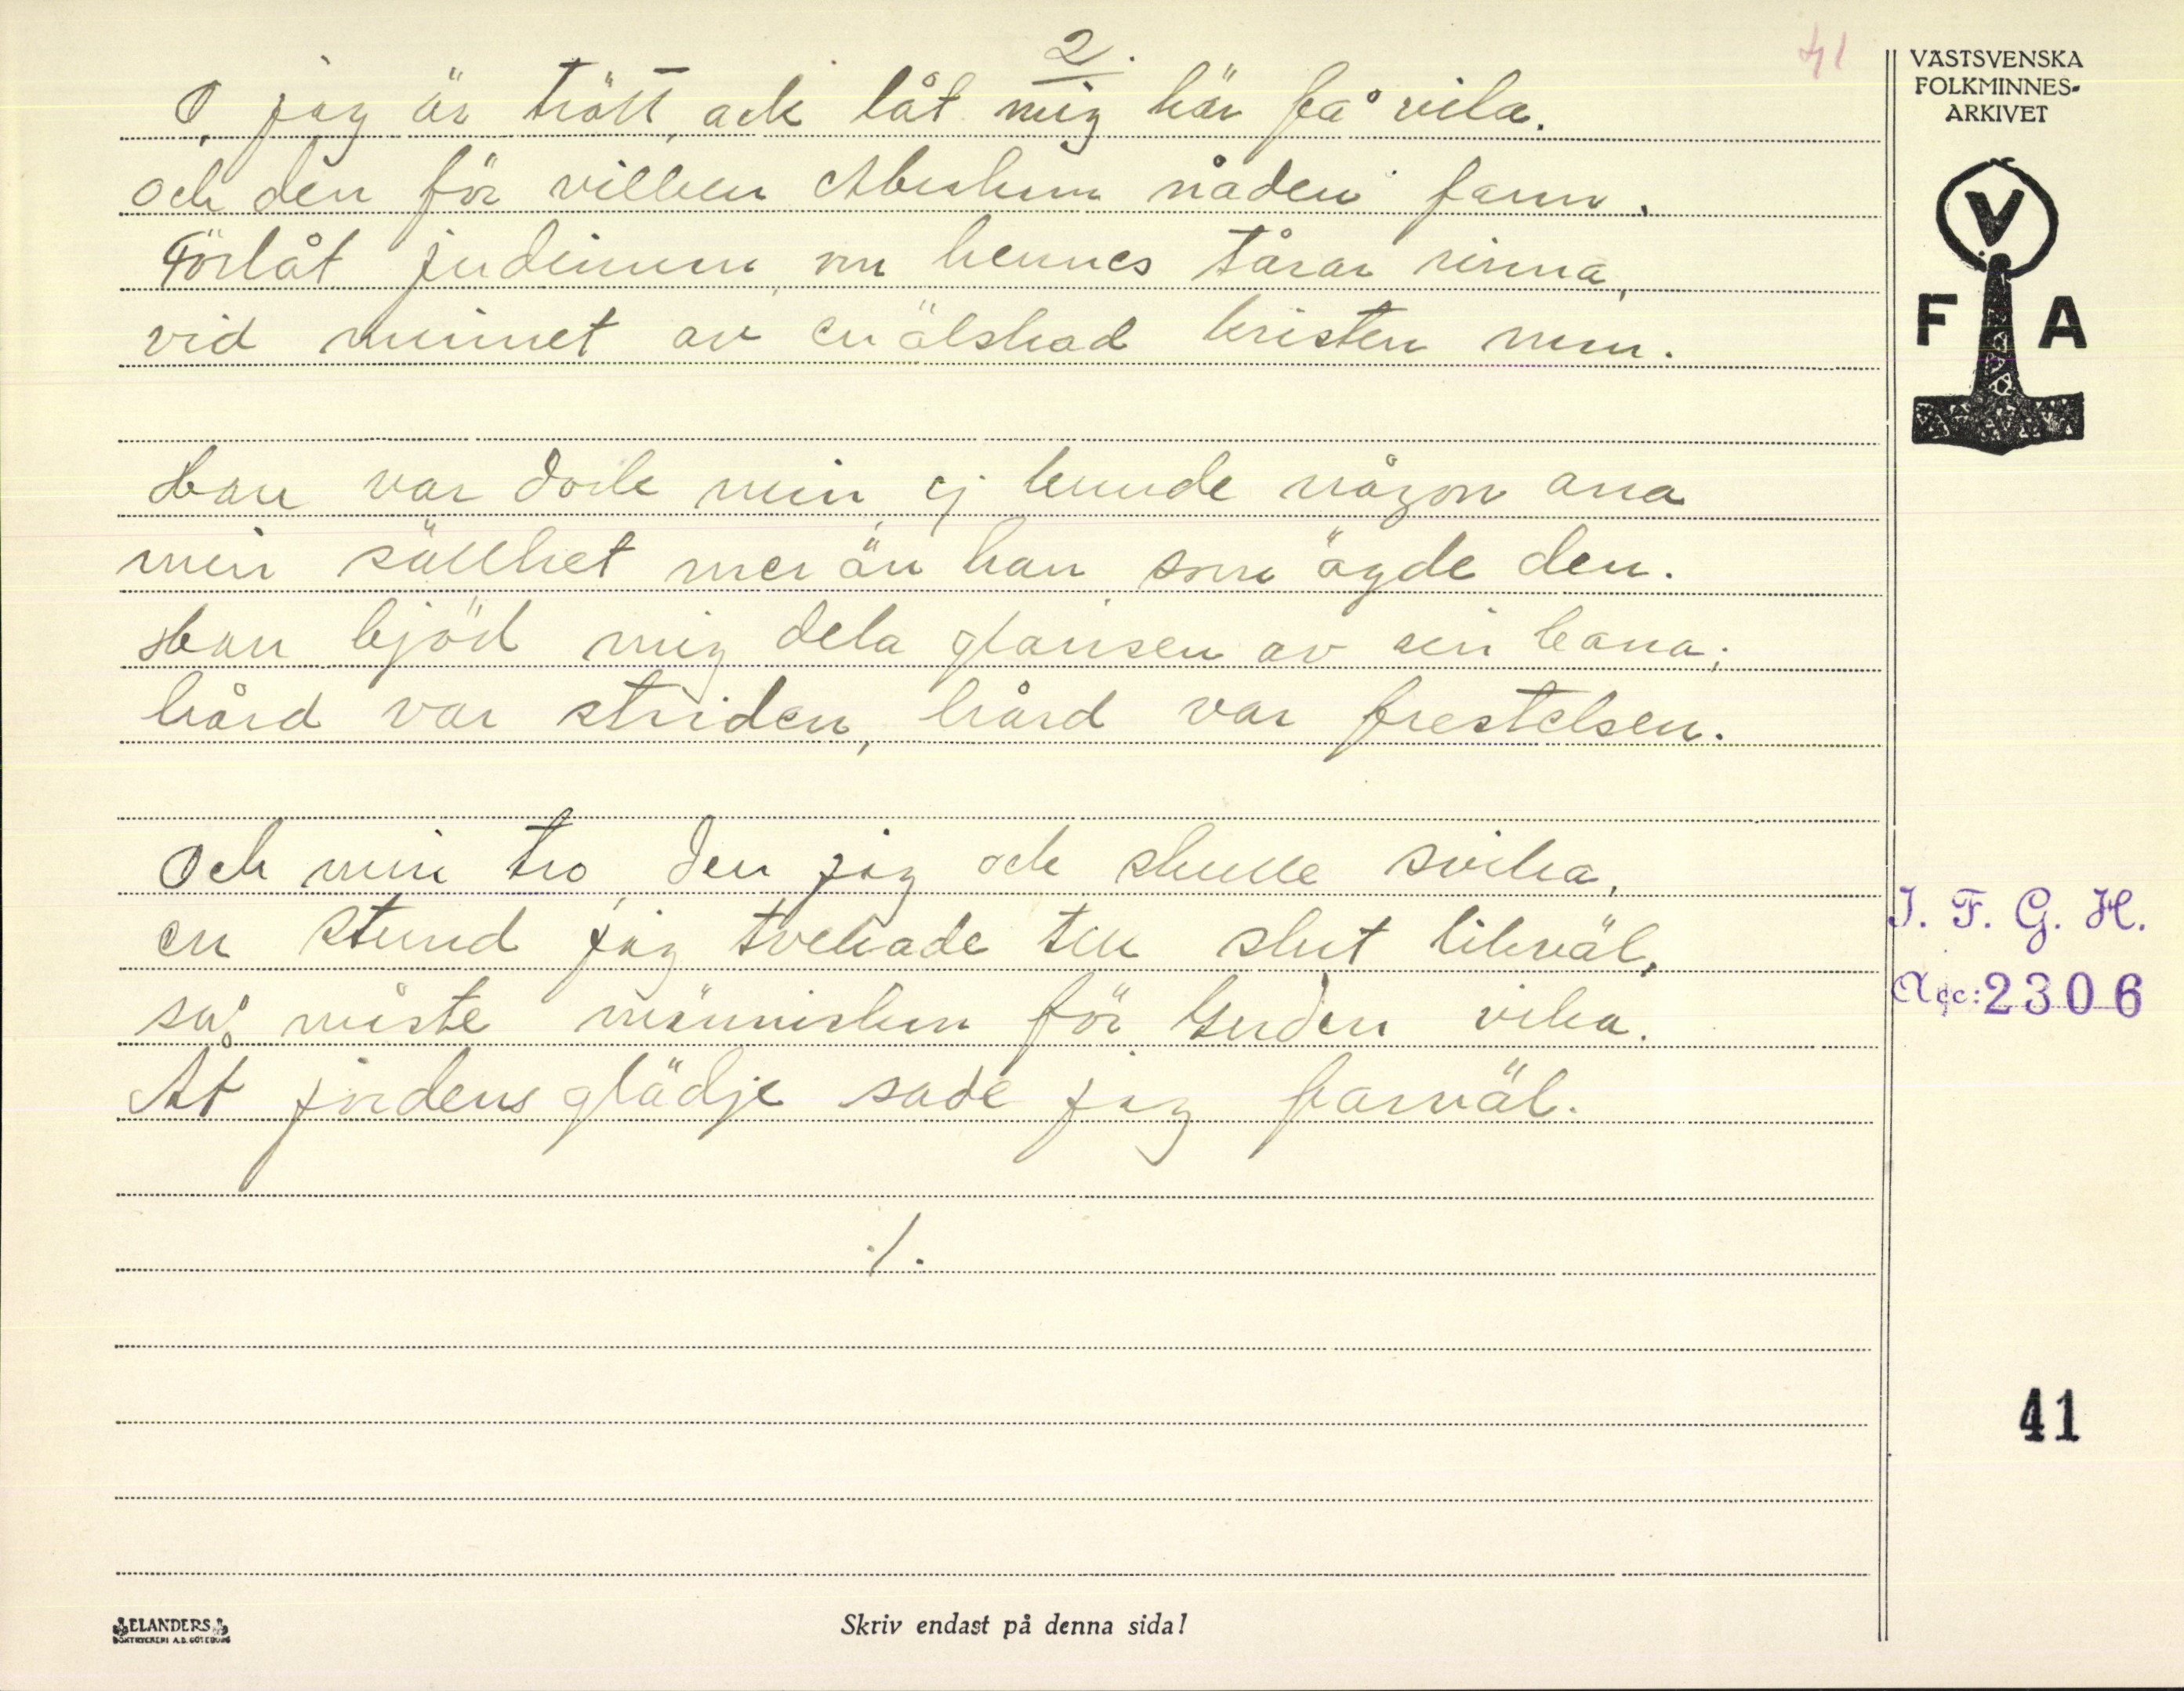 2.
41
O, jag är trött, ack låt mig här få vila.
och den för vilken Abraham nåden fann.
Förlåt judinnan, om hennes tårar rinna,
vid minnet av en älskad kristen man.
Han var dock min, ej kunde någon ana
min sällhet mer än han som ägde den.
Han bjöd mig dela glansen av sin bana;
hård var striden, hård var frestelsen.
Och min tro, den jag ock skulle svika,
en stund jag tvekade till slut likväl,
så måste människan för Guden vika.
Åt jordens glädje sade jag farväl.
./.
VÄSTSVENSKA
FOLKMINNES-
ARKIVET
V
F A
I. F. G. H.
Acc: 2306
41
ELANDERS
BOKTRYCKERI A.B. GÖTEBORG
Skriv endast på denna sida!